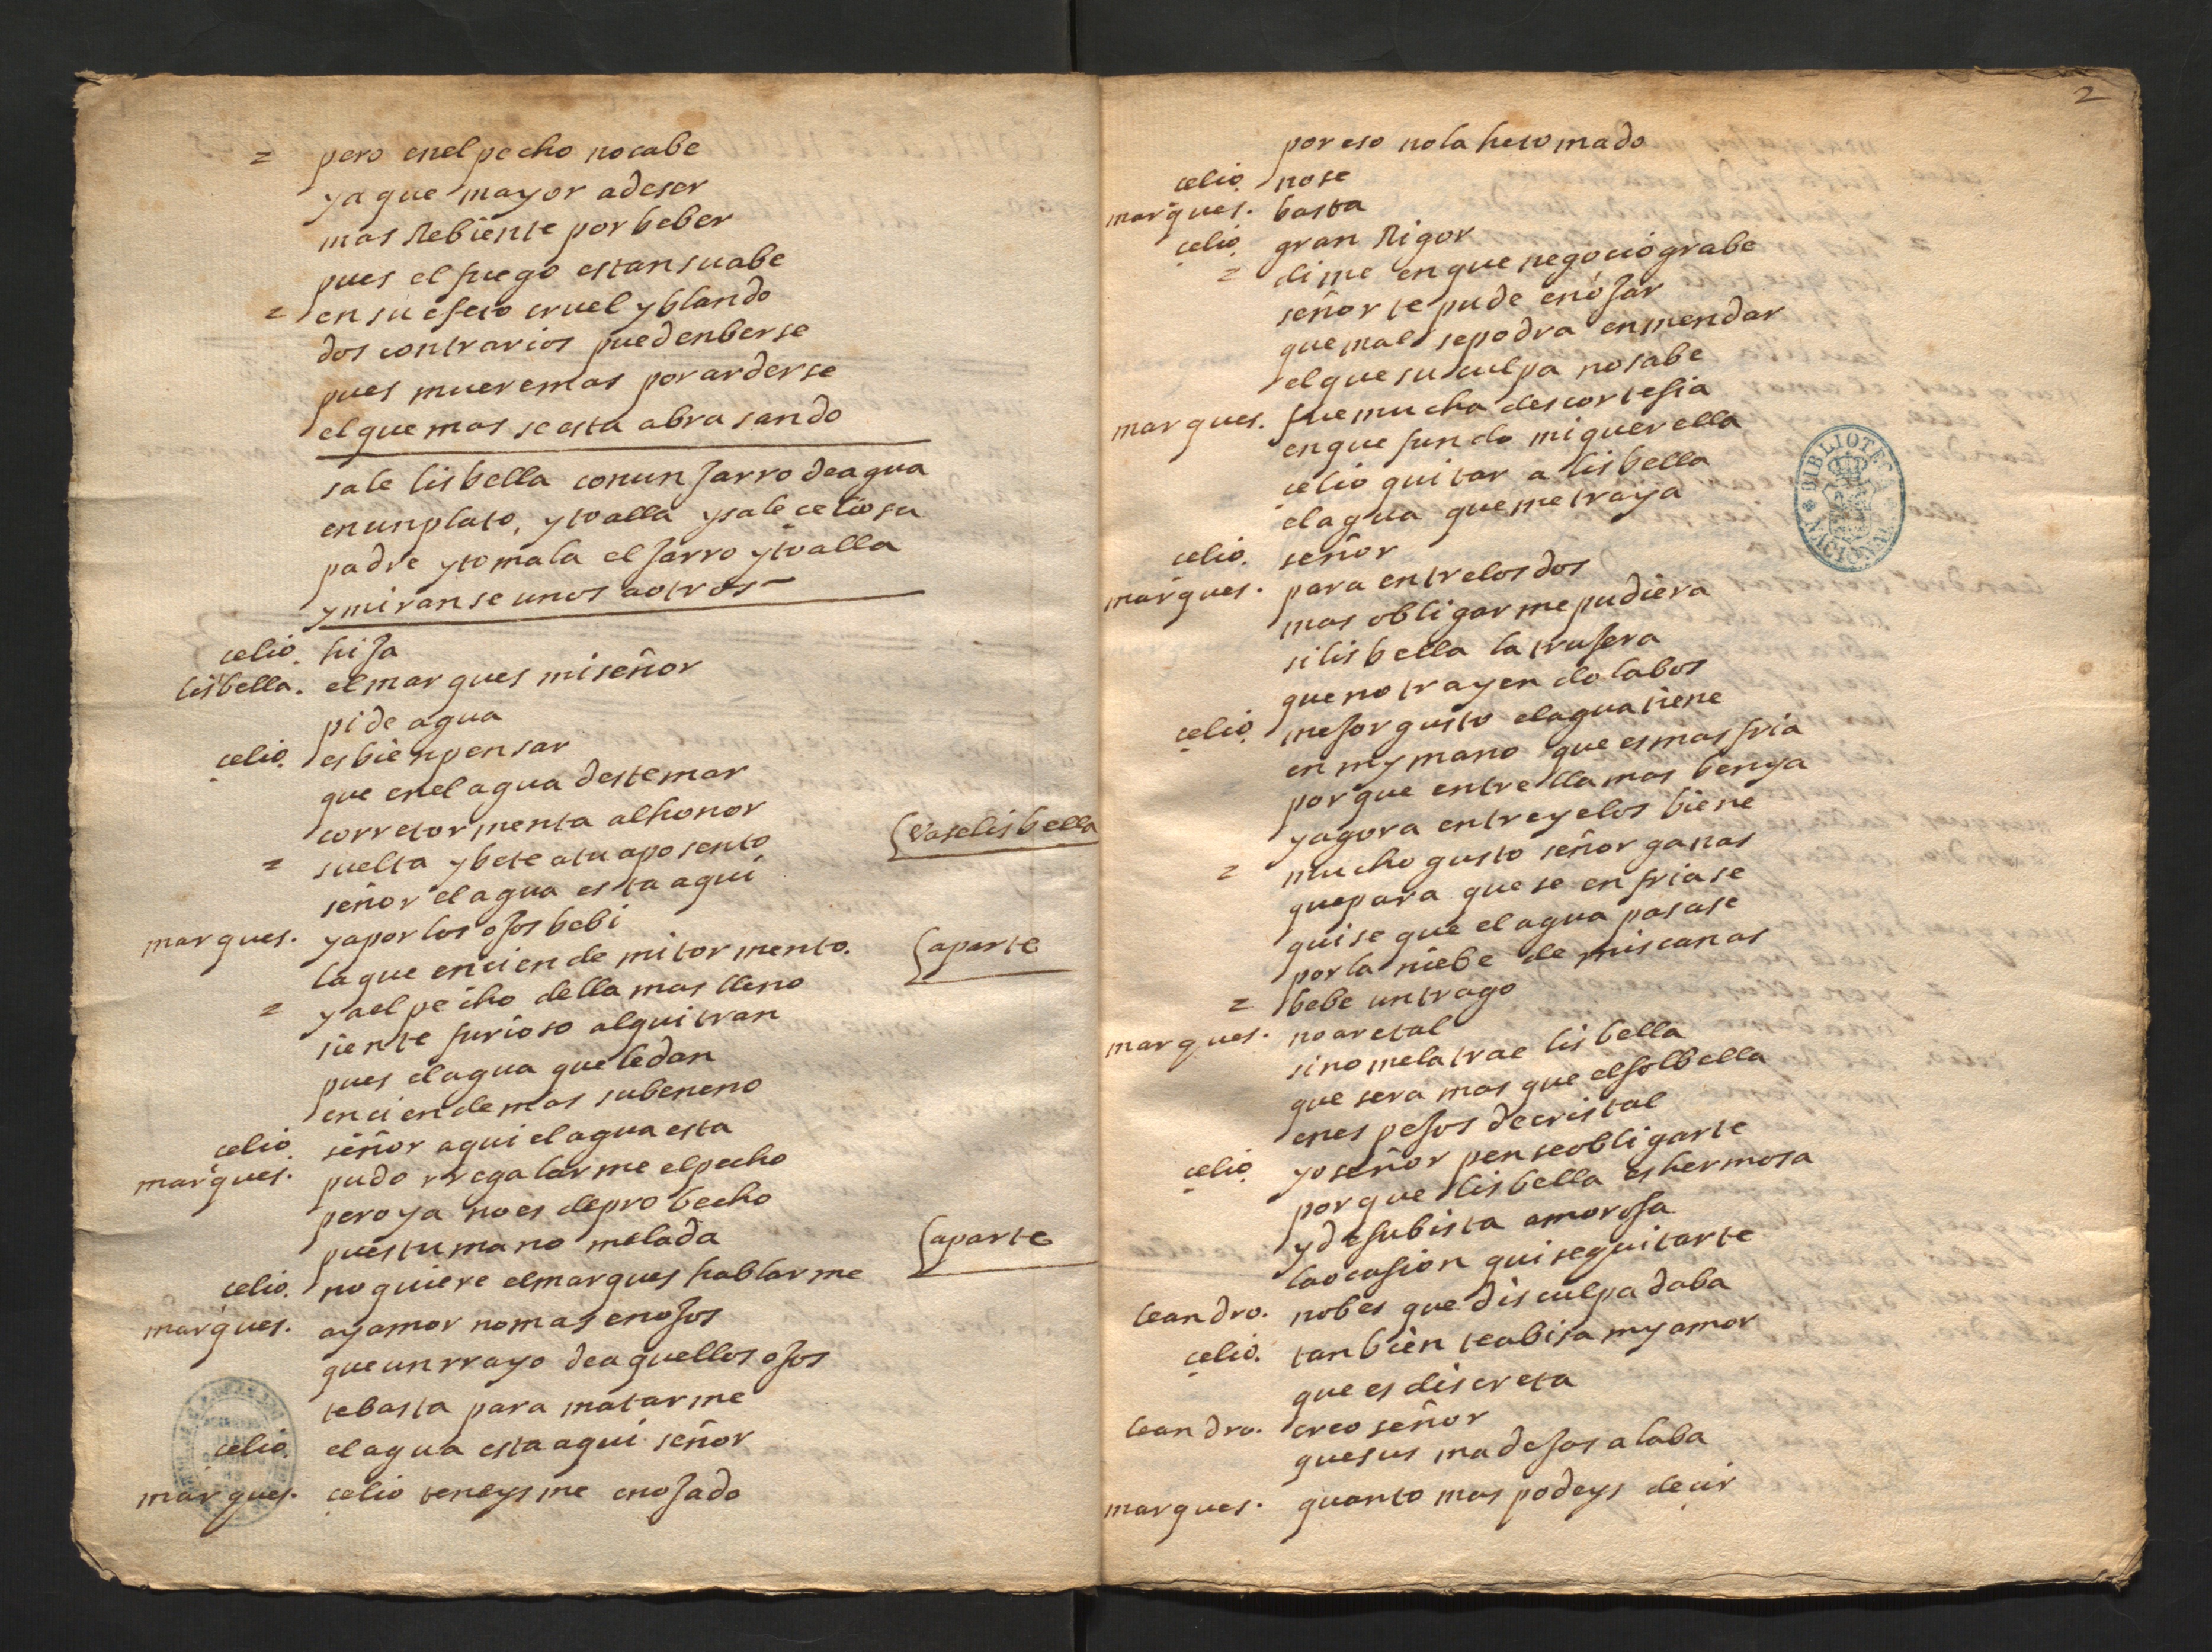 = pero enel pecho nocabe
ya que mayor adeser
mas Rebiente por beber
pues el fuego estansuabe
= en su efeto cruel y blando
dos contrarios puedenberse
pues mueremas porarderse
elque mas seesta abrasando
sale lisbella conun Jarro deagua
enunplato, ytoalla ysale celio su
padre ytomala el Jarro ytoalla
ymiranse unos aotros
celio. hiJa
lisbella. elmarques miseñor
pide agua
celio. esbienpensar
que enel agua destemar
corretormenta alhonor
= suelta ybete atu aposento (Vaselisbella
señor el agua esta aqui
marques. yaporlos oJos bebi
la que enciende mitormento. (aparte
= yael pecho della mas lleno
siente furioso alquitran
pues elagua queledan
enciendemas subeneno
celio. señor aqui elagua esta
marques. pudo rregalarme elpecho
peroya noes deprobecho
puestumano melada (aparte
celio. noquiere elmarques hablarme
marques. ayamor nomas enoJos
queunrrayo deaquellos oJos
tebasta para matarme
celio. elagua esta aqui señor
marques. celio teneysme enoJado
2
poreso nola hetomado
celio. nose
marques. basta
celio. gran Rigor
= dime enque negocio grabe
señor te pude enoJar
quemal sepodra enmendar
elque su culpa nosabe
marques. fuemucha descortesia
enque fundo miquerella
celio quitar a lisbella
elagua quemetraya
celio. señor
marques. para entrelosdos
mas obligarmepudiera
silisbella latruJera
quenotrayendolabos
celio. meJor gusto elaguatiene
en mymano que esmasfria
porque entrellamas benya
yagora entreyelos biene
= mucho gusto señor ganas
quepara quese enfriase
quise que elagua pasase
porla niebe de miscanas
= bebe untrago
marques. noaretal
sinomelatrae lisbella
que sera mas que elsolbella
enespeJos decristal
celio. yoseñor penseobligarte
porque lisbella eshermosa
ydesubista amorosa
laocasion quisequitarte
leandro. nobes que disculpadaba
celio. tanbien teabisa myamor
que es discreta
leandro. creo señor
quesus madeJas alaba
marques. quanto mas podeys decir